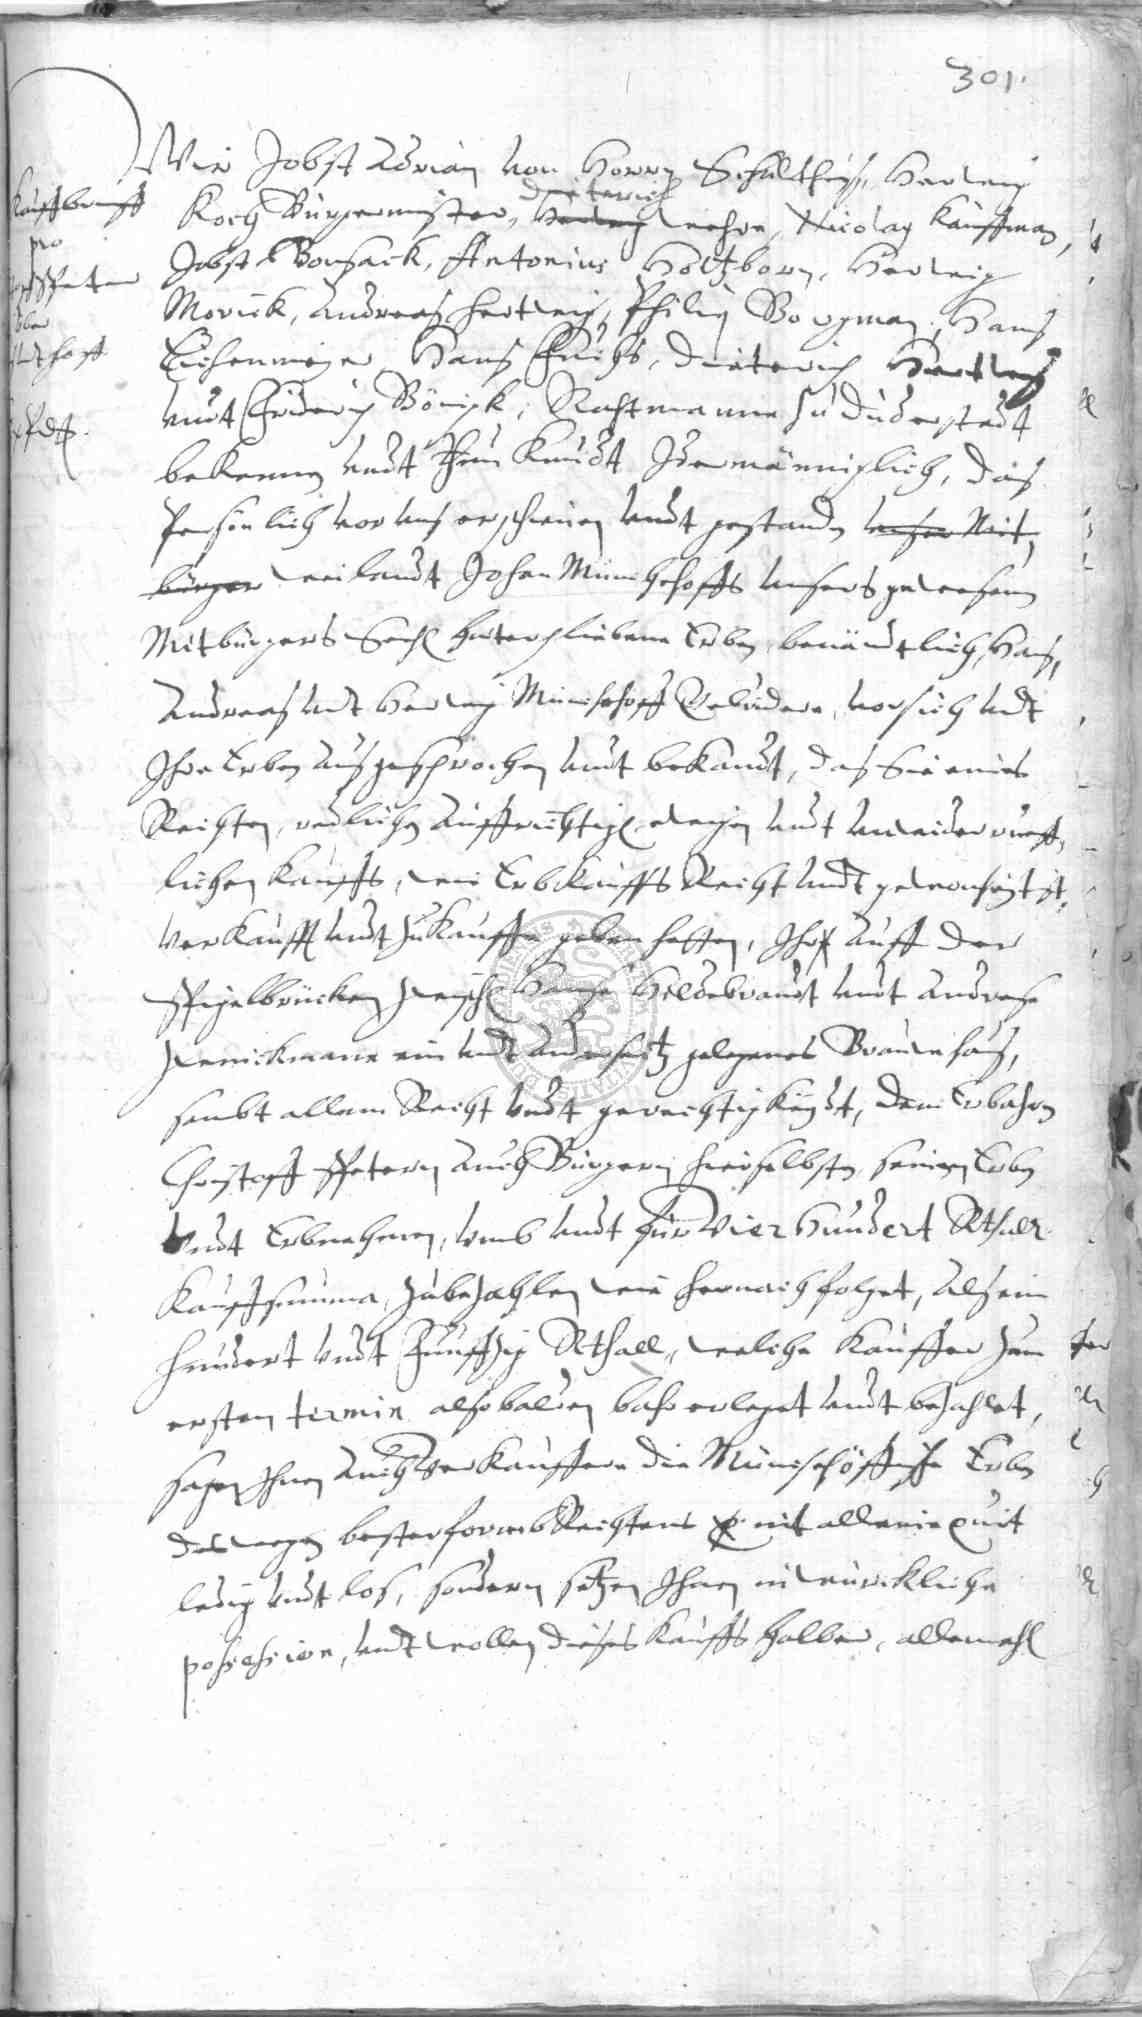 301.
Wir Jobst Adrian von Horrn Schultheiß, Herwig
Kauffbrieff
pro
Koch Bürgermeister, Dieterich Herwig Nicolaÿ Kauffman,
Jobst Bonsack, Antonius Holtzborn, Herwig
Morick, Andreas Hertwig, Philip Borgman, Hans
Eichenmeyer, Hans Fuchs, Dieterich Hertwig
undt Friderich Bönigk, Rahtmanne zu Duderstadt
bekennen undt thun kundt Idermänniglich, daß
Persönlich vor uns erschienen undt gestanden unser Mit,
bürger weilandt Johan Münchehoffs unsers gewesenen
Mitbürgers Seel hinterpliebene Erben, benändtlich, Hans,
Andreas undt Herwig Münchehoff Gebrüdere, vor sich undt
Ihre Erben außgesprochen undt bekandt, daß Sie eines
Rechten, redlichen Auffrichtigen ewigen undt unwiderrueff,
lichen Kauffs, wie Erbkauffs Recht undt gewonheit ist,
verkaufft undt zu kauffen geben hetten, Ihr auff der
Spiegelbrücken zwischen Hanse Hildebrandt undt Andrease
ein undt anderseitz gelegenes Brauwhaus,
sambt allem Recht undt gerechtigkeydt, dem Erbahren
Christoff Petern auch Bürgern hierselbsten, seinen Erben
undt Erbnehmen, umb undt für Vier Hundert Rthall
Kauffsumma, zubezahlen wie hernach folget, Alß ein
hundert undt Funffzig Rthall, welche Käuffer zum
ersten termin alsobalden bahr erleget undt bezahlet,
sagen Ihnen auch Verkauffere die Münchehöffische Erben
deswegen bester formb Rechtens nit alleine quit
ledig undt los, sondern setzen Ihnen in würckliche
possession, undt wollen dieses Kauffs halber, allemahl